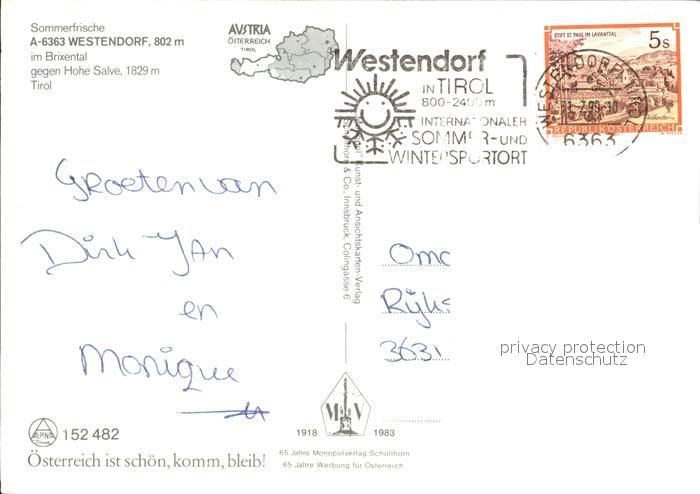 Sommerfrische
A-6363 WESTENDORF, 802 m
im Brixental
gegen Hohe Salve, 1829 m
Tirol
AUSTRIA
ÖSTERREICH
TIROL
Westendorf
IN TIROL
800-2400 m
INTERNATIONALER
SOMMER-UND
WINTERSPORTORT
STIFT ST. PAUL IM LAVANTTAL
5s
REPUBLIK ÖSTERREICH
6363
Kunst- und Ansichtskarten-Verlag
& Co., Innsbruck, Colingasse 6
Groeten van
Dirk JAn
en
Monique
Oma
Rijks
3631
privacy protection
Datenschutz
M V
1918 1983
65 Jahre Monopolverlag Schöllhorn
65 Jahre Werbung für Österreich
ALPINA
152 482
Österreich ist schön, komm, bleib!